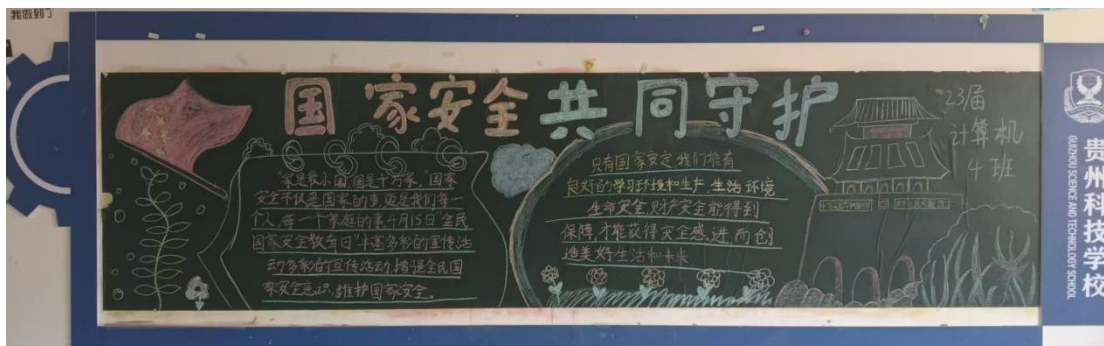 国家安全共同守护
"家是最小国,国是千万家。"国家
安全不仅是国家的事,更是我们每一
个人,每一个家庭的事。4月15日"全民
国家安全教育日"丰富多彩的宣传活
动多彩的宣传活动,增强全民国
家安全意识,维护国家安全。
只有国家安定,我们能有
良好的学习环境和生产、生活环境
生命安全,财产安全能得到
保障,才能获得安全感,进而创
造美好生活和未来
23届
计算机
4班
贵州科技学校
GUIZHOU SCIENCE AND TECHNOLOGY SCHOOL